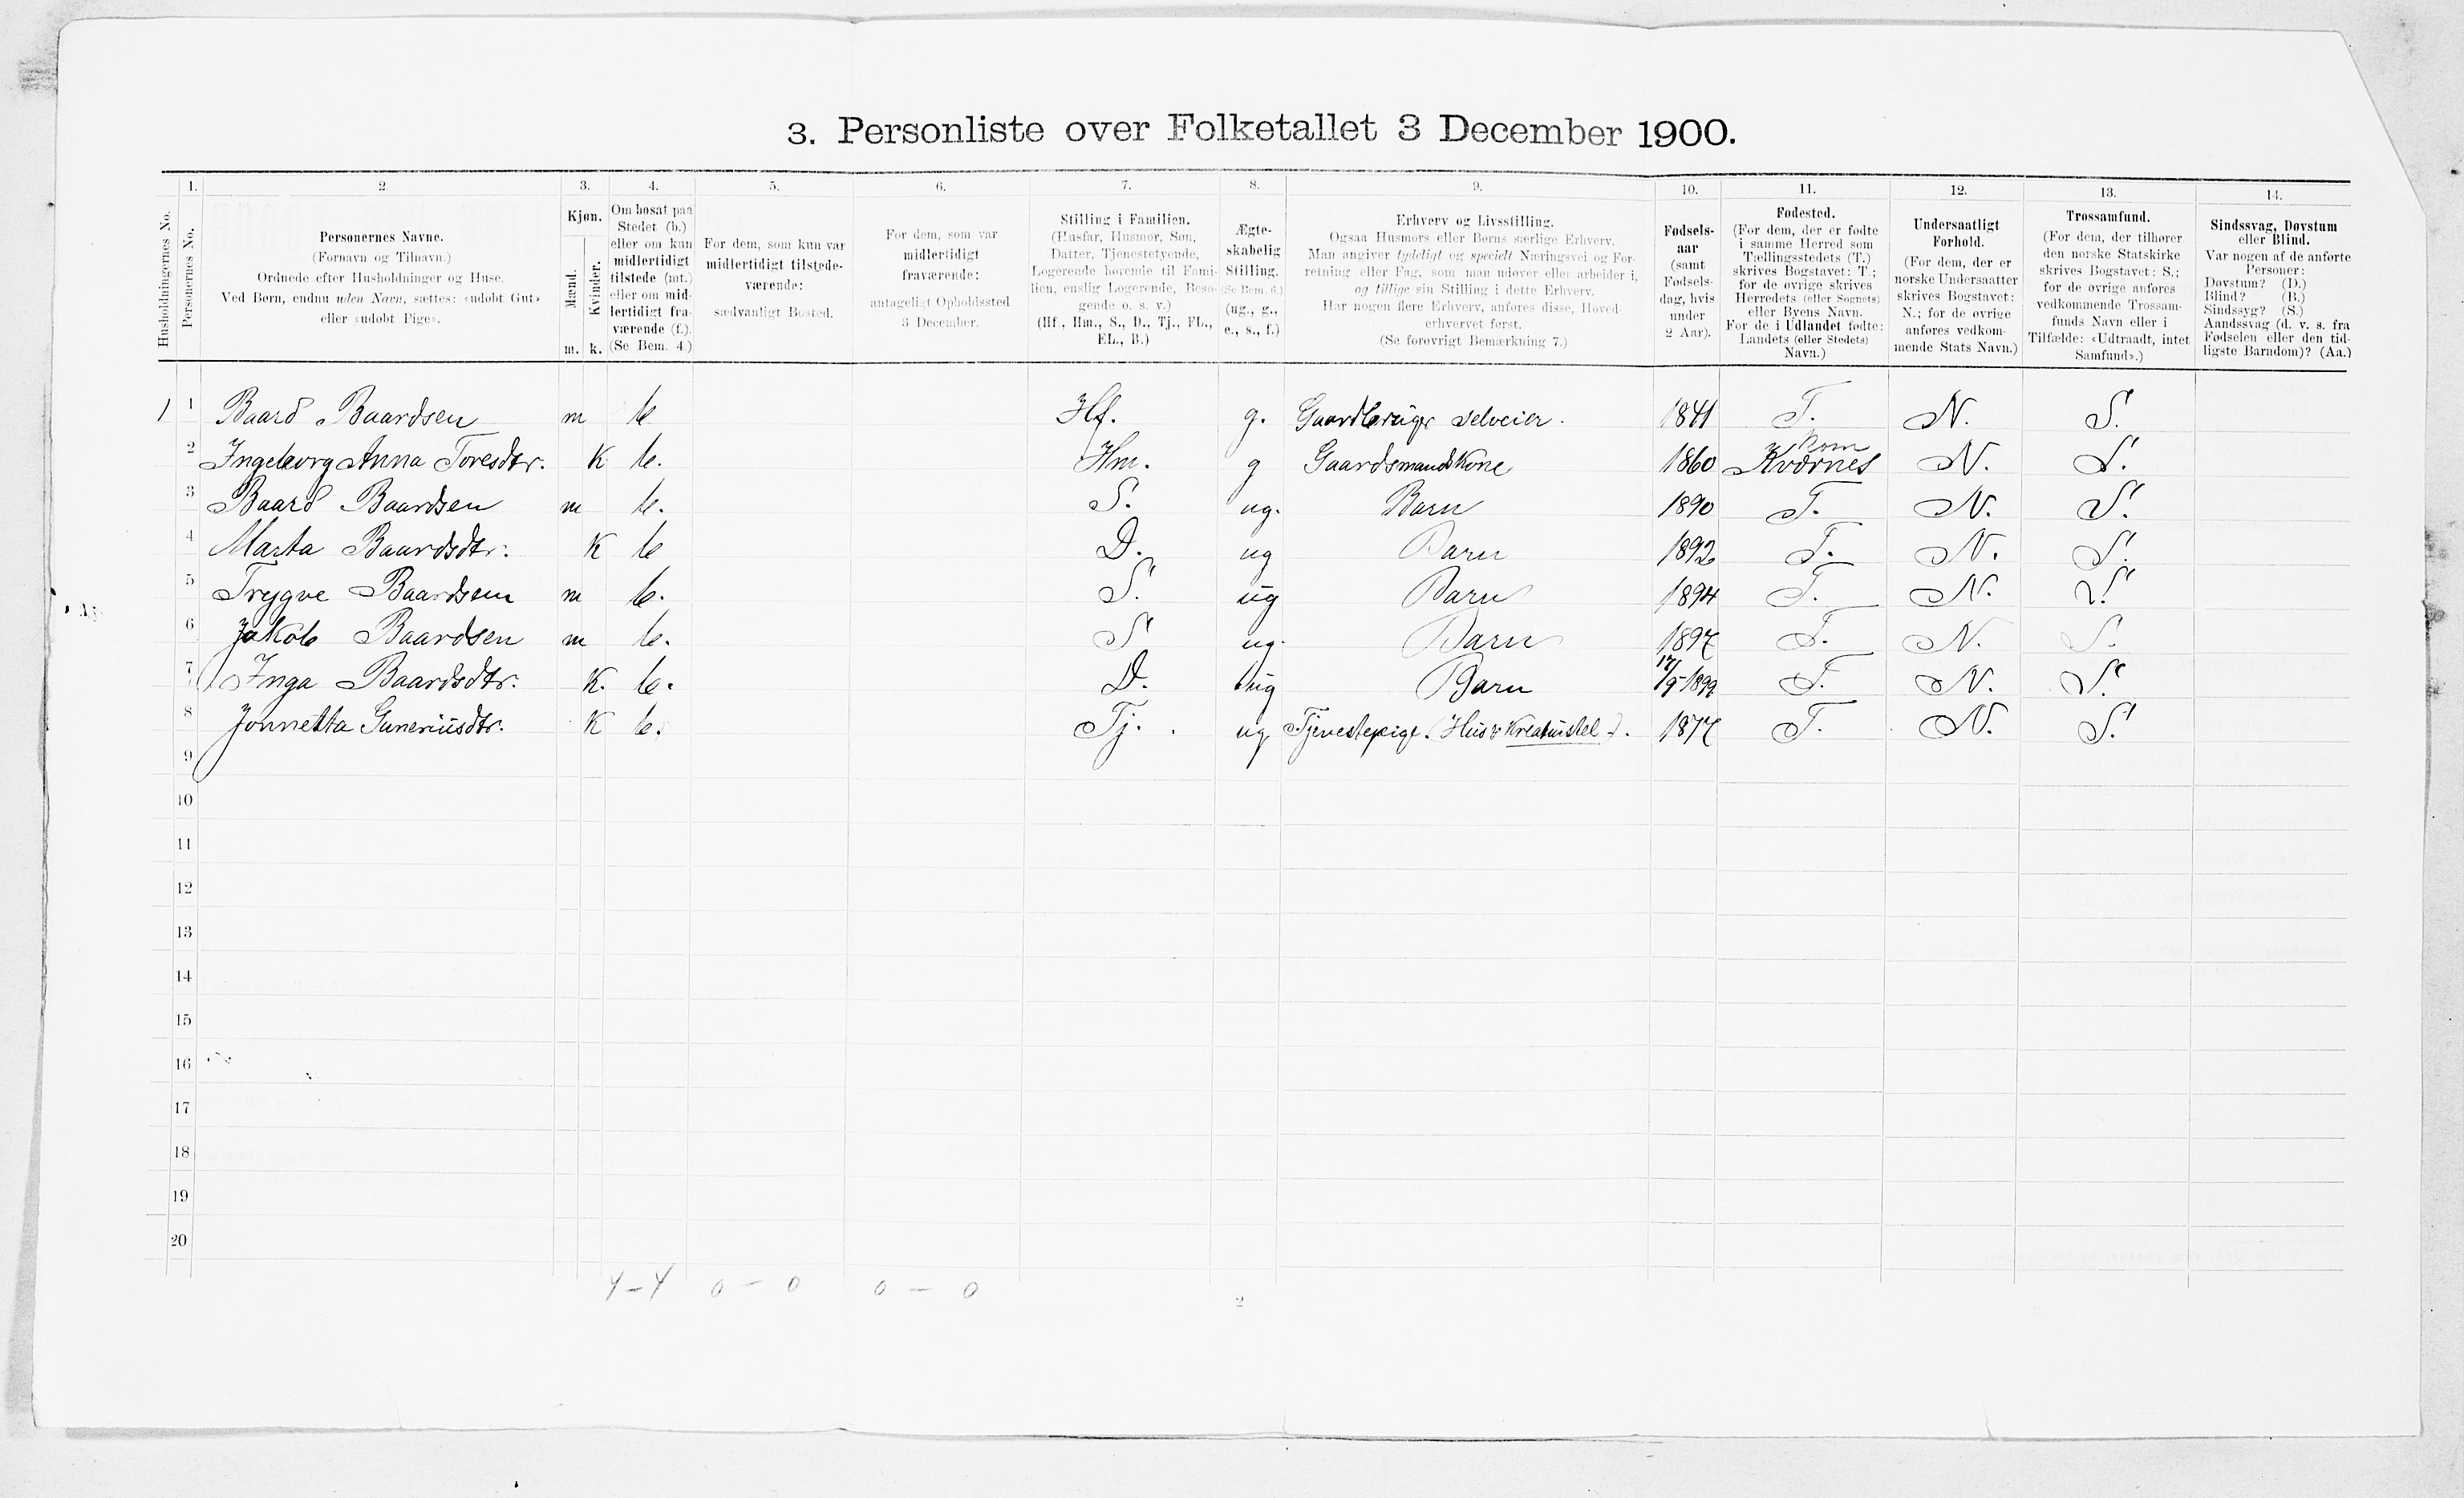 3. Personliste over Folketallet 3 December 1900.
1. 2. 3. 4. 5. 6. 7. 8. 9. 10. 11. 12. 13. 14.
Husholdningernes No.
Personernes No.
Personernes Navne.
(Fornavn og Tilnavn.)
Ordnede efter Husholdninger og Huse.
Ved Børn, endnu uden Navn, sættes: «udøbt Gut»
eller «udøbt Pige».
Kjøn.
Mænd.
Kvinder.
m. k.
Om bosat paa
Stedet (b.)
eller om kun
midlertidigt
tilstede (mt.)
eller om mid-
lertidigt fra-
værende (f.).
(Se Bem. 4.)
For dem, som kun var
midlertidigt tilstede-
værende:
sædvanligt Bosted.
For dem, som var
midlertidigt
fraværende:
antageligt Opholdssted
3 December.
Stilling i Familien.
(Husfar, Husmor, Søn,
Datter, Tjenestetyende,
Logerende hørende til Fami-
lien, enslig Logerende, Besø-
gende o. s. v.)
(Hf., Hm., S., D., Tj., FL.,
EL., B.)
Ægte-
skabelig
Stilling.
(Se Bem. 6.)
(ug., g.,
e., s., f.)
Erhverv og Livsstilling.
Ogsaa Husmors eller Børns særlige Erhverv.
Man angiver tydeligt og specielt Næringsvei og For-
retning eller Fag, som man udøver eller arbeider i,
og tillige sin Stilling i dette Erhverv.
Har nogen flere Erhverv, anføres disse, Hoved-
erhvervet først.
(Se forøvrigt Bemærkning 7.)
Fødsels-
aar
(samt
Fødsels-
dag, hvis
under
2 Aar).
Fødested.
(For dem, der er fødte
i samme Herred som
Tællingsstedets (T.)
skrives Bogstavet: T.;
for de øvrige skrives
Herredets (eller Sognets)
eller Byens Navn.
For de i Udlandet fødte:
Landets (eller Stedets)
Navn.)
Undersaatligt
Forhold.
(For dem, der er
norske Undersaatter
skrives Bogstavet:
N.; for de øvrige
anføres vedkom-
mende Stats Navn.)
Trossamfund.
(For dem, der tilhører
den norske Statskirke
skrives Bogstavet: S.;
for de øvrige anføres
vedkommende Trossam-
funds Navn eller i
Tilfælde: «Udtraadt, intet
Samfund».)
Sindssvag, Døvstum
eller Blind.
Var nogen af de anførte
Personer:
Døvstum? (D.)
Blind? (B.)
Sindssyg? (S.)
Aandssvag (d. v. s. fra
Fødselen eller den tid-
ligste Barndom)? (Aa.)
1 1 Baard Baardsen m b. Hf. g. Gaardbruger selveier. 1841 T. N. S.
2 Ingeborg Anna Toresdtr. K b. Hm. g Gaardsmandskone 1860 Kværnes Rom N. S.
3 Baard Baardsen m b. S. ug. Barn 1890 T. N. S.
4 Marta Baardsdtr. K b D. ug Barn 1892 T. N. S.
5 Trygve Baardsen m b. S. ug Barn 1894 T. N. S.
6 Jakob Baardsen m b. S ug. Barn 1897 T. N. S.
7 Inga Baardsdtr. K. b. D. ug Barn 17/9 1899 T. N. S.
8 Jonnetta Guneriusdtr. K b. Tj. ug Tjenestepige. (Hus & Kreaturstel). 1877 T. N. S.
9
10
11
12
13
14
15
16
17
18
19
20
4 - 4 0 - 0 0 - 0
2